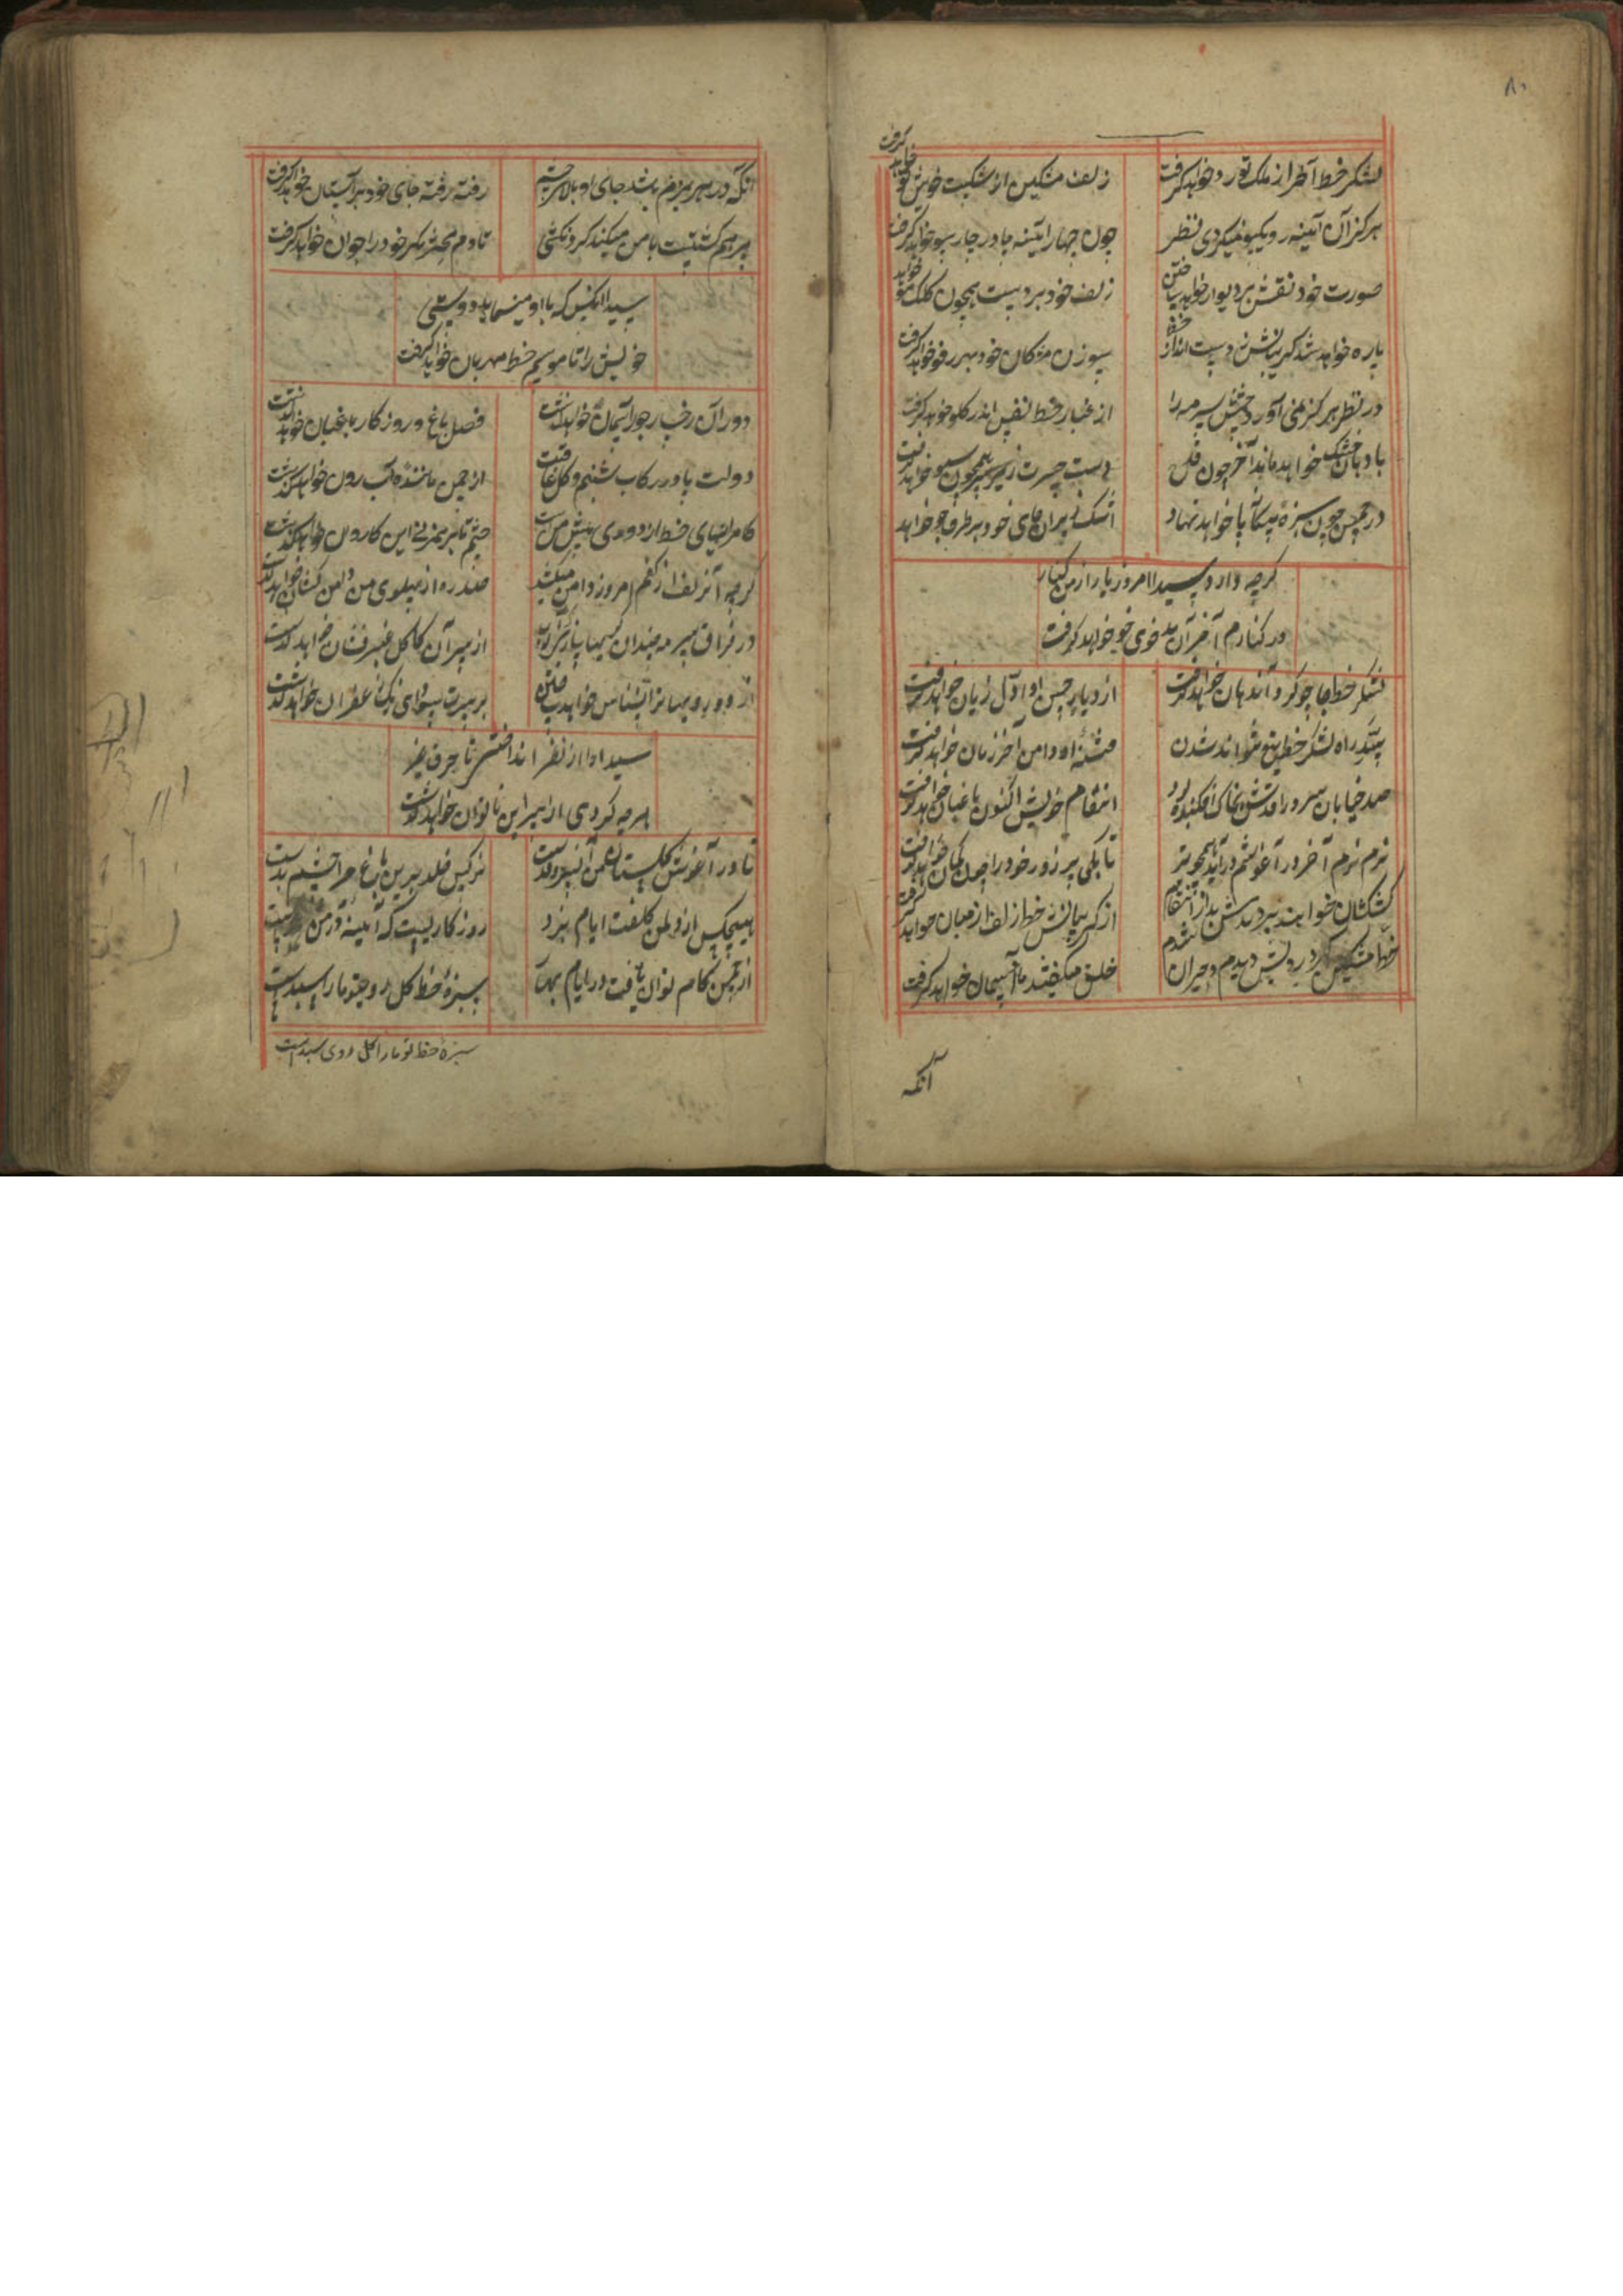 ۸۰
لشکر خط آخر از ملک تو رو خواهد گرفت
زلف مشکین از شکست خویش خو خواهد گرفت
هرگز آن آیینه رو یکسو نمیکردی نظر
چون چهار آیینه جا در چار سو خواهد گرفت
صورت خود نقش بر دیوار خواهد ساختن
زلف خود بر دست همچون کلک مو خواهد
پاره خواهد شد گریبانش ز دست انداز خط
سوزن مژکان خود بهر رفو خواهد گرفت
در نظر هرگز نمی آورد چشمش سرمه را
از غبار خط نفس اندر گلو خواهد گرفت
بادبان خشک خواهد ماند آخر چون قدح
دست حسرت زیر سر همچون سبو خواهد گرفت
در چمن چون سبزهٔ بیگانه پا خواهد نهاد
اشک ریزان جای خود بر طرف جو خواهد
گرچه دارد سیدا امروز یار از من کنار
در کنارم آخر آن بدخوی خو خواهد گرفت
لشکر خط جا چو گرد آن دهان خواهد گرفت
از دیار حسن او اول زبان خواهد گرفت
سد راه لشکر خطش نتواند شدن
فتنهٔ او دامن آخر زمان خواهد گرفت
صد خیابان سرو را قدش بخاک افکنده بود
انتقام خویش اکنون باغبان خواهد گرفت
نرم نرم آخر در آغوشم درآید همچو تیر
تا بکی پر زور خود را چون کمان خواهد گرفت
کشتگان خوابند بردندش بداد انتقام
از گریبانش خط از لف از میان خواهد گرفت
خط مشکین گرد رویش دیدم و حیران شدم
خلق میگفتند ماه آسمان خواهد گرفت
آنکه
آنکه در هر بزم باشد جای او بالا نشین
رفته رفته جای خود بر آستان خواهد گرفت
تا دم محشر مگر خود را جوان خواهد گرفت
سیدا آنکس که با او مینماید دوستی
خویش را تا موسم خط مهربان خواهد گرفت
دور آن رخسار چون آسمان خواهد گذشت
فصل باغ و روزگار باغبان خواهد گذشت
دولت پا در رکاب شبنم و گل عاقبت
از چمن مانند آب روان خواهد گذشت
چشم تا بر هم زنی این کاروان خواهد گذشت
گرچه آن زلف از کفم امروز دامن میکشد
از سر آن کاکل عنبر فشان خواهد گذشت
سیدا را از نظر انداختی
هر چه کردی از سر این ناتوان خواهد گذشت
تا در آغوش گلستان من آن سرو قدست
نرگس خلد برین باغ مرا چشم بدست
هیچکس از دل من کلفت ایام نبرد
روزگاریست که آیینهٔ من
از چمن کام توان یافت در ایام بهار
سبزهٔ خط گل روی تو ما را سبدست
سبزهٔ خط تو ما را گل روی سبد است